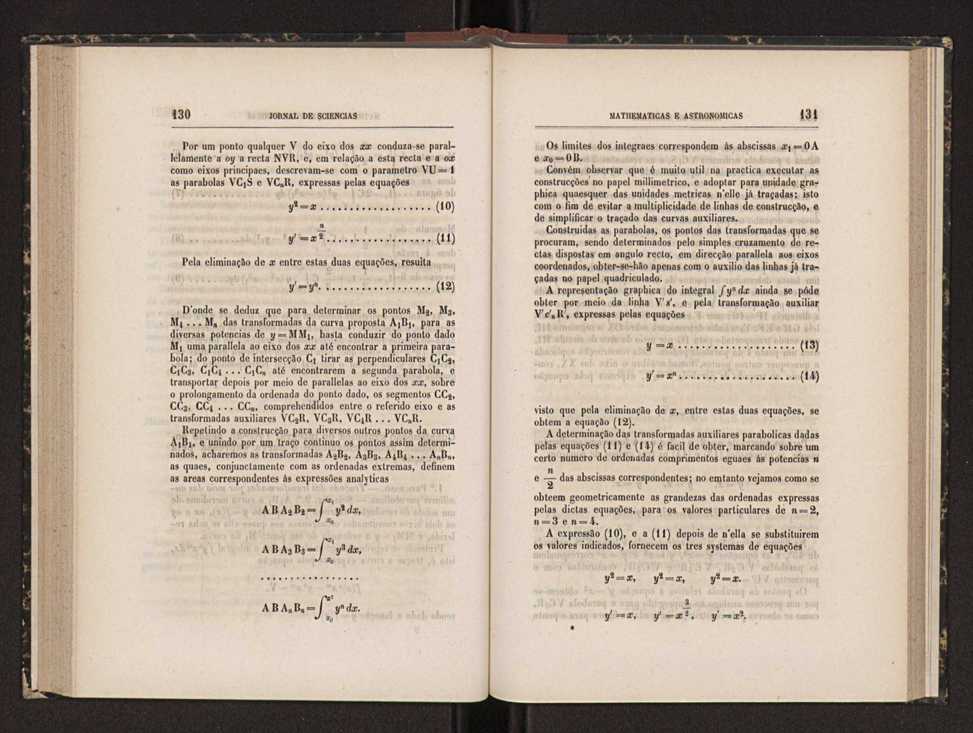 130 JORNAL DE SCIENCIAS
Por um ponto qualquer V do eixo dos xx conduza-se paral-
lelamente a oy a recta NVR, e, em relação a esta recta e a ox
como eixos principaes, descrevam-se com o parametro VU = 1
as parabolas VC₁S e VCₙR, expressas pelas equações
y² = x .................. (10)
y' = x^(n/2) ................. (11)
Pela eliminação de x entre estas duas equações, resulta
y' = yⁿ. .................. (12)
D'onde se deduz que para determinar os pontos M₂, M₃,
M₄ ... Mₙ das transformadas da curva proposta A₁B₁, para as
diversas potencias de y = MM₁, basta conduzir do ponto dado
M₁ uma parallela ao eixo dos xx até encontrar a primeira para-
bola; do ponto de intersecção C₁ tirar as perpendiculares C₁C₂,
C₁C₃, C₁C₄ ... C₁Cₙ até encontrarem a segunda parabola, e
transportar depois por meio de parallelas ao eixo dos xx, sobre
o prolongamento da ordenada do ponto dado, os segmentos CC₂,
CC₃, CC₄ ... CCₙ, comprehendidos entre o referido eixo e as
transformadas auxiliares VC₂R, VC₃R, VC₄R ... VCₙR.
Repetindo a construcção para diversos outros pontos da curva
A₁B₁, e unindo por um traço continuo os pontos assim determi-
nados, acharemos as transformadas A₂B₂, A₃B₃, A₄B₄ ... AₙBₙ,
as quaes, conjunctamente com as ordenadas extremas, definem
as areas correspondentes ás expressões analyticas
A B A₂ B₂ = ∫ₓ₀ˣ¹ y² dx,
A B A₃ B₃ = ∫ₓ₀ˣ¹ y³ dx,
.................
A B Aₙ Bₙ = ∫ₓ₀ˣ¹ yⁿ dx.
MATHEMATICAS E ASTRONOMICAS 131
Os limites dos integraes correspondem ás abscissas x₁ = 0A
e x₀ = 0B.
Convém observar que é muito util na practica executar as
construcções no papel millimetrico, e adoptar para unidade gra-
phica quaesquer das unidades metricas n'elle já traçadas; isto
com o fim de evitar a multiplicidade de linhas de construcção, e
de simplificar o traçado das curvas auxiliares.
Construidas as parabolas, os pontos das transformadas que se
procuram, sendo determinados pelo simples cruzamento de re-
ctas dispostas em angulo recto, em direcção parallela aos eixos
coordenados, obter-se-hão apenas com o auxilio das linhas já tra-
çadas no papel quadriculado.
A representação graphica do integral ∫ yⁿ dx ainda se póde
obter por meio da linha V's', e pela transformação auxiliar
V'c'ₙR', expressas pelas equações
y = x ................... (13)
y' = xⁿ ................... (14)
visto que pela eliminação de x, entre estas duas equações, se
obtem a equação (12).
A determinação das transformadas auxiliares parabolicas dadas
pelas equações (11) e (14) é facil de obter, marcando sobre um
certo numero de ordenadas comprimentos eguaes ás potencias n
e n/2 das abscissas correspondentes; no emtanto vejamos como se
obteem geometricamente as grandezas das ordenadas expressas
pelas dictas equações, para os valores particulares de n = 2,
n = 3 e n = 4.
A expressão (10), e a (11) depois de n'ella se substituirem
os valores indicados, fornecem os tres systemas de equações
y² = x, y² = x, y² = x.
y' = x, y' = x^(3/2), y' = x².
*